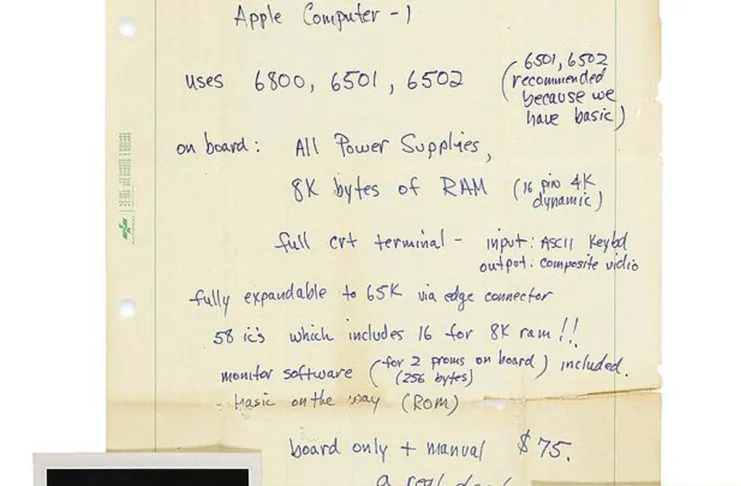 Apple Computer - 1
uses 6800, 6501, 6502
(6501, 6502
recommended
because we
have basic)
on board: All Power Supplies,
8K bytes of RAM (16 pin 4K
dynamic)
full crt terminal - input: ASCII Keybd
output: composite vidio
fully expandable to 65K via edge connector
58 ic's which includes 16 for 8K ram!!
monitor software (for 2 proms on board) included.
(256 bytes)
- basic on the way (ROM)
board only + manual $75.
a real deal